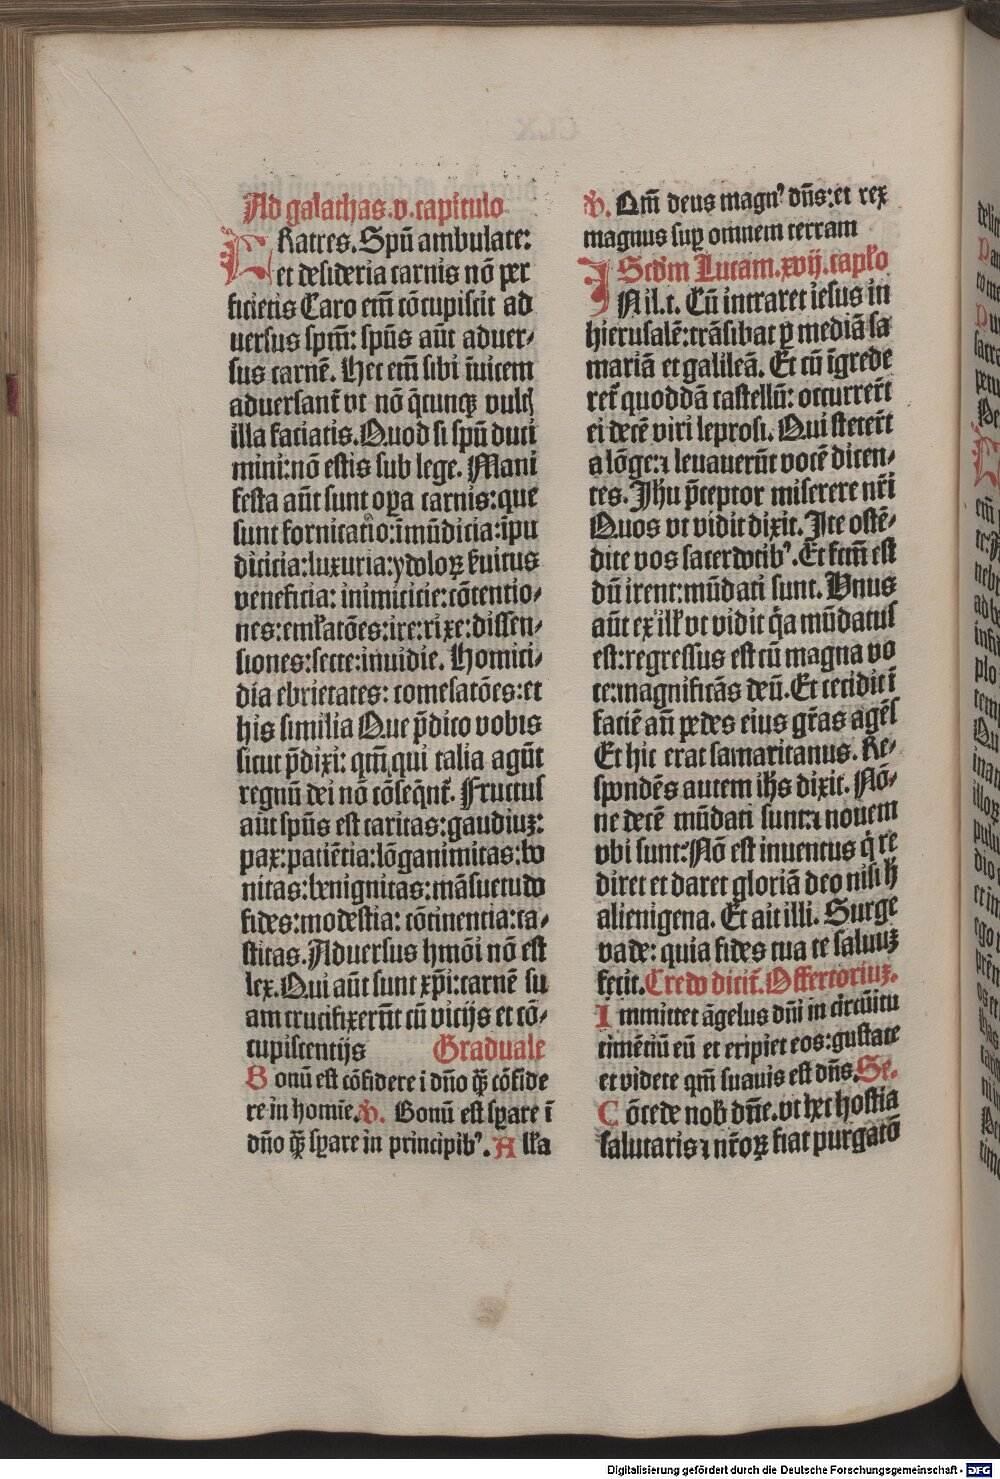 Ad galathas.v.capitulo
FRatres.Spũ ambulate:
et desideria carnis nõ per
ficietis Caro em̃ cõcupiscit ad
uersus spm̃: spũs aũt aduer-
sus carnẽ. Hec em̃ sibi ĩuicem
aduersant̃ vt nõ q̃cunqꝫ vult
illa faciatis.Quod si spũ duci
mini:nõ estis sub lege. Mani
festa aũt sunt oꝑa carnis:que
sunt fornicatio:ĩmũdicia:ĩpu
dicicia:luxuria:ydoloꝝ ẜuitus
veneficia: inimicicie:cõtentio-
nes:eml̃atões:ire:rixe:dissen-
siones:secte:inuidie. Homici-
dia ebrietates: comesatões:et
his similia Que p̃dico vobis
sicut p̃dixi: qm̃ qui talia agũt
regnũ dei nõ cõseq̃nt̃. Fructus
aũt spũs est caritas:gaudiuꝫ:
pax:paciẽtia:lõganimitas:bo
nitas:benignitas:mãsuetudo
fides:modestia: cõtinentia:ca-
stitas. Aduersus hmõi nõ est
lex.Qui aũt sunt xp̃i:carnẽ su
am crucifixerũt cũ vicijs et cõ-
cupiscentijs Graduale
Bonũ est cõfidere i dño q̃ꝫ cõfide
re in homĩe.V. Bonũ est sꝑare ĩ
dño q̃ꝫ sꝑare in principibꝰ. All̃a
V. Qm̃ deus magnꝰ dñs:et rex
magnus suꝑ omnem terram
Scd̃m Lucam.xvij.capl̃o
INil.t. Cũ intraret iesus in
hierusalẽ:trãsibat ꝑ mediã sa
mariã et galileã. Et cũ ĩgrede
ret̃ quoddã castellũ: occurrer̃t
ei decẽ viri leprosi. Qui steter̃t
a lõge:⁊ leuauerũt vocẽ dicen-
tes. Jhu p̃ceptor miserere nr̃i
Quos vt vidit dixit. Ite ostẽ-
dite vos sacerdotibꝰ.Et fctm̃ est
dũ irent:mũdati sunt. Vnus
aũt ex ill̃ vt vidit q̃a mũdatus
est:regressus est cũ magna vo
ce:magnificãs deũ.Et cecidit ĩ
faciẽ añ pedes eius gr̃as agẽs
Et hic erat samaritanus. Re-
spondẽs autem ihs̃ dixit. Nõ-
ne decẽ mũdati sunt:⁊ nouem
vbi sunt:Nõ est inuentus q̃ re
diret et daret gloriã deo nisi h̃
alienigena. Et ait illi. Surge
vade: quia fides tua te saluuꝫ
fecit.Credo dicit̃.Offertoriuꝫ.
Immittet ãgelus dñi in circũitu
timẽciũ eũ et eripiet eos:gustate
et videte qm̃ suauis est dñs.Se.
Cõcede nob̃ dñe.vt hec hostia
salutaris ⁊ nr̃oꝝ fiat purgatõ
Digitalisierung gefördert durch die Deutsche Forschungsgemeinschaft - DFG